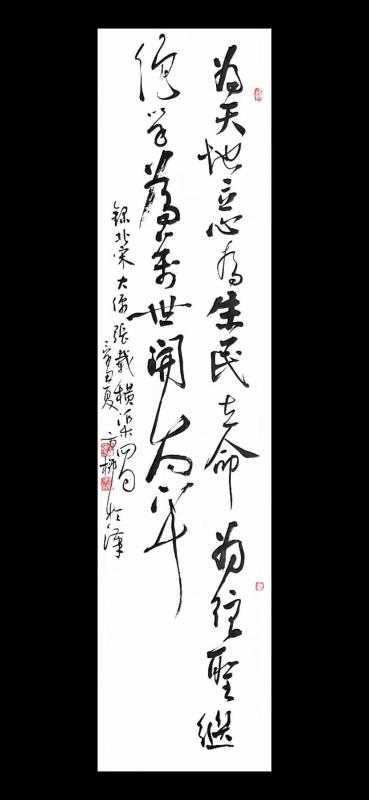 為天地立心為生民立命為往聖繼
絕學為萬世開太平
錄北宋大儒張載橫渠四句
辛丑夏
於漢